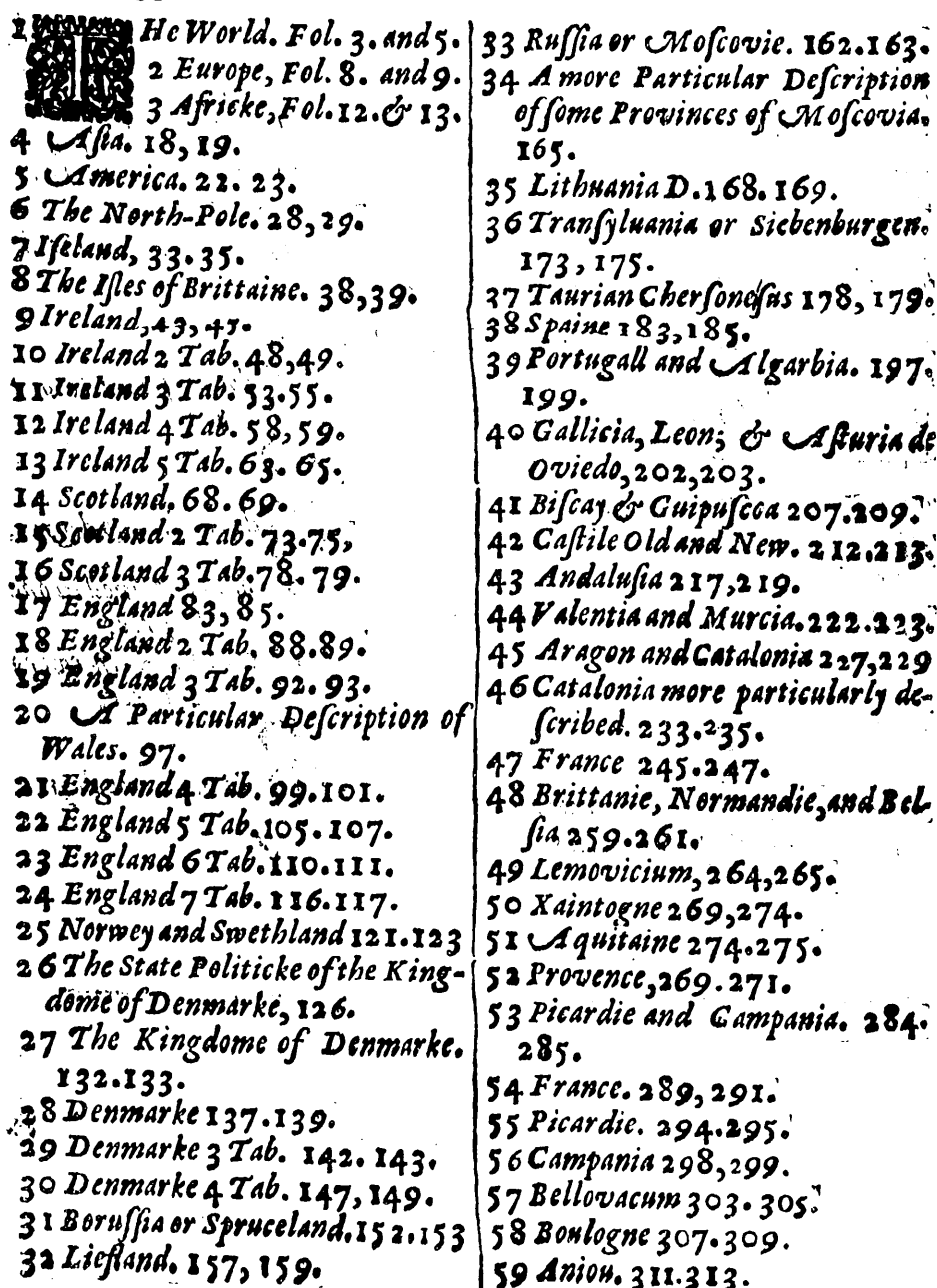 1 THe World. Fol. 3. and 5.
2 Europe, Fol. 8. and 9.
3 Africke, Fol. 12. & 13.
4 Aſia. 18, 19.
5 America. 22. 23.
6 The North-Pole. 28, 29.
7 Iſeland, 33. 35.
8 The Iſles of Brittaine. 38, 39.
9 Ireland, 43, 45.
10 Ireland 2 Tab. 48, 49.
11 Ireland 3 Tab. 53. 55.
12 Ireland 4 Tab. 58, 59.
13 Ireland 5 Tab. 63. 65.
14 Scotland. 68. 69.
15 Scotland 2 Tab. 73. 75,
16 Scotland 3 Tab. 78. 79.
17 England 83, 85.
18 England 2 Tab. 88. 89.
19 England 3 Tab. 92. 93.
20 A Particular Deſcription of
Wales. 97.
21 England 4 Tab. 99. 101.
22 England 5 Tab. 105. 107.
23 England 6 Tab. 110. 111.
24 England 7 Tab. 116. 117.
25 Norwey and Swethland 121. 123
26 The State Politicke of the King-
dome of Denmarke, 126.
27 The Kingdome of Denmarke.
132. 133.
28 Denmarke 137. 139.
29 Denmarke 3 Tab. 142. 143.
30 Denmarke 4 Tab. 147, 149.
31 Boruſſia or Spruceland. 152. 153
32 Liefland. 157, 159.
33 Ruſſia or Moſcovie. 162. 163.
34 A more Particular Deſcription
of ſome Provinces of Moſcovia.
165.
35 Lithuania D. 168. 169.
36 Tranſyluania or Siebenburgen.
173, 175.
37 Taurian Cherſoneſus 178, 179.
38 Spaine 183, 185.
39 Portugall and Algarbia. 197.
199.
40 Gallicia, Leon, & Aſturia de
Oviedo, 202, 203.
41 Biſcay & Guipuſcoa 207. 209.
42 Caſtile Old and New. 212. 213.
43 Andaluſia 217, 219.
44 Valentia and Murcia. 222. 223.
45 Aragon and Catalonia 227, 229
46 Catalonia more particularly de-
ſcribed. 233. 235.
47 France 245. 247.
48 Brittanie, Normandie, and Bel-
ſia 259. 261.
49 Lemovicium, 264, 265.
50 Xaintogne 269, 274.
51 Aquitaine 274. 275.
52 Provence, 269. 271.
53 Picardie and Campania. 284.
285.
54 France. 289, 291.
55 Picardie. 294. 295.
56 Campania 298, 299.
57 Bellovacum 303. 305.
58 Boulogne 307. 309.
59 Aniou. 311. 313.